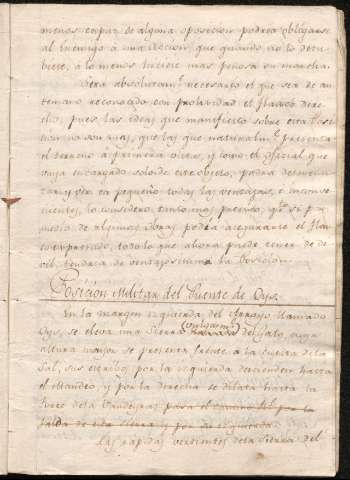 menos capaz de alguna oposicion podria obligarse
al Enemigo á una accion, que quando no lo detu-
biese, á lo menos hiciese mas penosa su marcha.
Será absolutam.te necesario el que sea de an-
temano reconocido con prolixidad el flanco dere-
cho, pues las ideas que manifiesto sobre esta Posi-
cion no son mas, que las que naturalm.te presenta
el terreno á primera vista, y como el oficial que
vaya encargado solo de este objeto, podrá desmenu-
zar y ver en pequeño todas las ventajas, é inconve-
nientes, lo considero tanto mas preciso, q.to si p.r
medio de algunas obras podia asegurarse el flan-
co expresado, todo lo que ahora puede tener de de-
vil, tendria de ventajosisima la Posicion.
Posicion Militar del Puente de Oys.
En la margen izquierda del Arroyo llamado
Oys, se eleva una Sierra (vulgarm.te) del Gato, cuya
altura mayor se presenta frente á la
Sal, sus estribos por la izquierda descienden hasta
el Mandeo, y por la derecha se dilata hasta la
Torre de la para el camino Rl. por la
falda de esta sierra, y por su izquierda
Las rapidas vertientes de la Sierra del